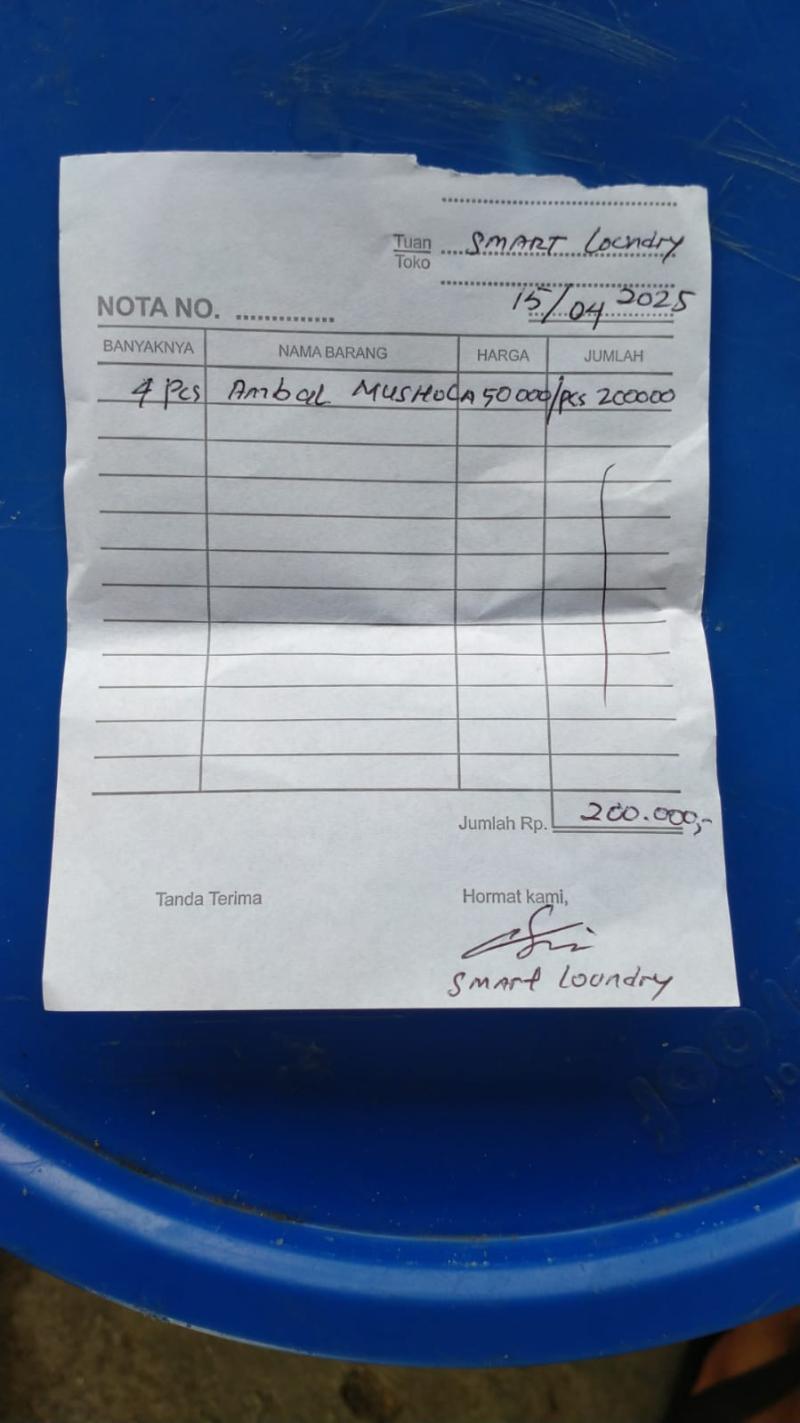 Tuan
Toko
SMART Loundry
15/04 2025
NOTA NO.
BANYAKNYA NAMA BARANG HARGA JUMLAH
4 Pcs Ambal MUSHOLA 50000/pcs 200000
Jumlah Rp. 200.000,-
Tanda Terima Hormat kami,
SMART Loundry